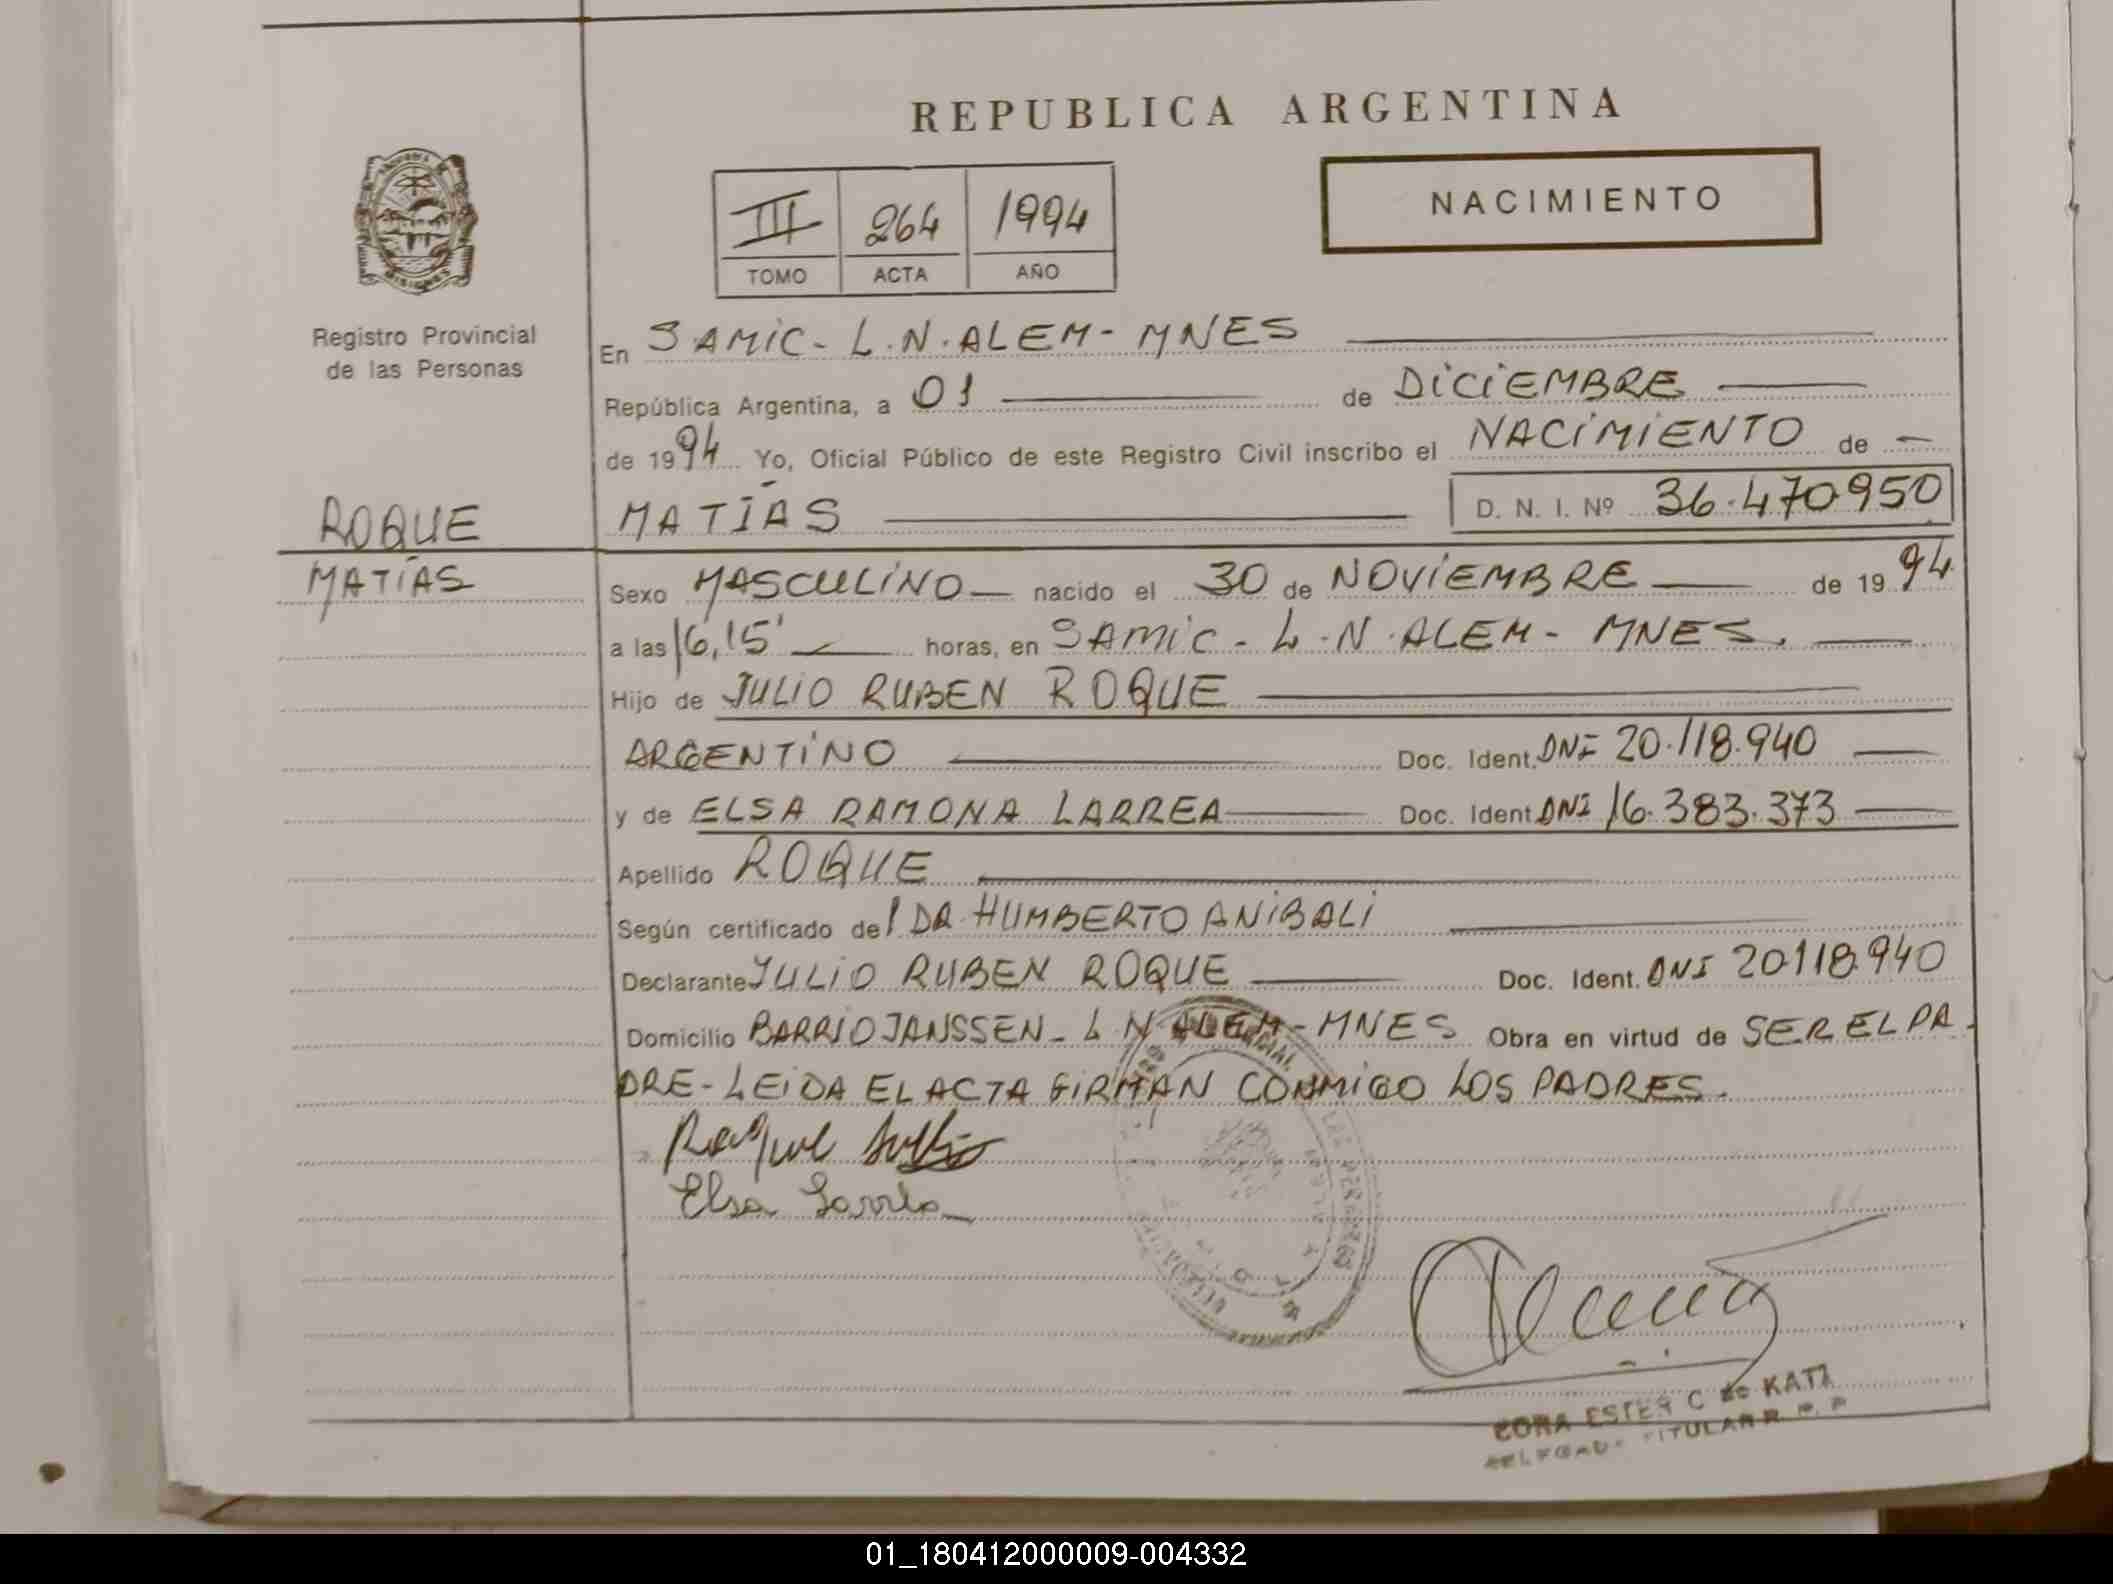 REPUBLICA ARGENTINA
NACIMIENTO
III 264 1994
TOMO ACTA AÑO
Registro Provincial
de las Personas
En SAMIC - L.N. ALEM - MNES
República Argentina, a 01 de DICIEMBRE
de 1994 Yo, Oficial Público de este Registro Civil inscribo el NACIMIENTO de
MATÍAS D. N. I. Nº 36.470950
ROQUE
MATÍAS
Sexo MASCULINO nacido el 30 de NOVIEMBRE de 1994
a las 16,15' horas, en SAMIC - L.N. ALEM - MNES.
Hijo de JULIO RUBEN ROQUE
ARGENTINO Doc. Ident. DNI 20.118.940
y de ELSA RAMONA LARREA Doc. Ident. DNI 16.383.373
Apellido ROQUE
Según certificado del DR. HUMBERTO ANIBALI
Declarante JULIO RUBEN ROQUE Doc. Ident. DNI 20118.940
Domicilio BARRIO JANSSEN - L.N. ALEM - MNES Obra en virtud de SER EL PA-
DRE - LEIDA EL ACTA FIRMAN CONMIGO LOS PADRES.
Roque Julio
Elsa Larrea
ESTER C de KATZ
TITULAR R. P. P
01_180412000009-004332